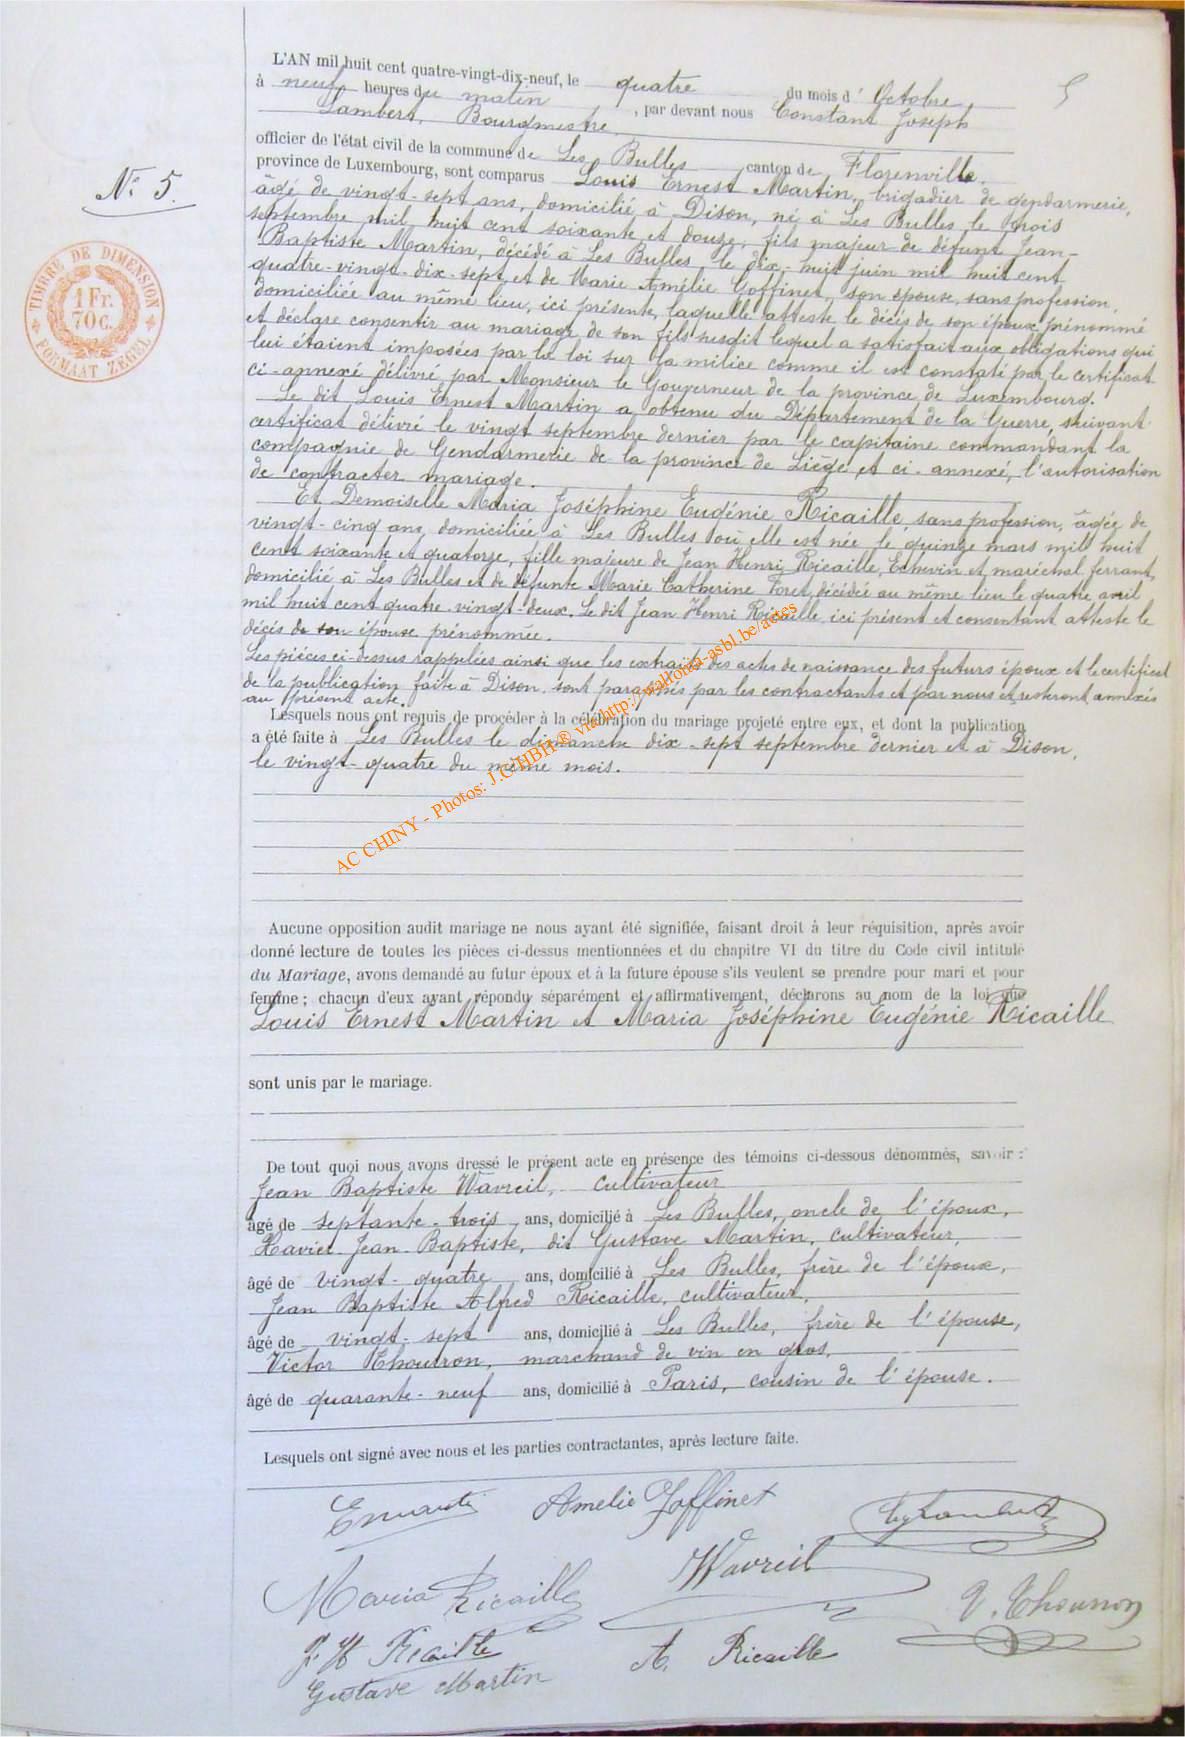 L'AN mil huit cent quatre-vingt-dix-neuf, le quatre du mois d' Octobre,
5
à neuf heures du matin, par devant nous Constant Joseph
Lambert, Bourgmestre
officier de l'état civil de la commune de Les Bulles canton de Florenville.
province de Luxembourg, sont comparus Louis Ernest Martin, brigadier de gendarmerie,
Nº 5.
âgé de vingt-sept ans, domicilié à Dison, né à Les Bulles le trois
septembre mil huit cent soixante et douze, fils majeur de défunt Jean-
Baptiste Martin, décédé à Les Bulles le dix-huit juin mil huit cent
quatre-vingt-dix-sept et de Marie Amélie Goffinet, son épouse, sans profession,
domiciliée au même lieu, ici présente, laquelle atteste le décès de son époux prénommé
et déclare consentir au mariage de son fils susdit lequel a satisfait aux obligations qui
lui étaient imposées par la loi sur la milice comme il est constaté par le certificat
ci-annexé délivré par Monsieur le Gouverneur de la province de Luxembourg.
TIMBRE DE DIMENSION
1 Fr.
70 C.
FORMAAT ZEGEL
Le dit Louis Ernest Martin a obtenu du Département de la Guerre, suivant
certificat délivré le vingt septembre dernier par le capitaine commandant la
compagnie de Gendarmerie de la province de Liège et ci-annexé, l'autorisation
de contracter mariage.
Et Demoiselle Maria Joséphine Eugénie Ricaille sans profession, âgée de
vingt-cinq ans, domiciliée à Les Bulles où elle est née le quinze mars mil huit
cent soixante et quatorze, fille majeure de Jean Henri Ricaille, Echevin et maréchal ferrant,
domicilié à Les Bulles et de défunte Marie Catherine Foret, décédée au même lieu le quatre avril
mil huit cent quatre-vingt-deux. Le dit Jean Henri Ricaille ici présent et consentant atteste le
décès de son épouse prénommée.
Les pièces ci-dessus rappelées ainsi que les extraits des actes de naissance des futurs époux et le certificat
de la publication faite à Dison, sont paraphés par les contractants et par nous et resteront annexés
au présent acte.
Lesquels nous ont requis de procéder à la célébration du mariage projeté entre eux, et dont la publication
a été faite à Les Bulles le dimanche dix-sept septembre dernier et à Dison,
le vingt-quatre du même mois.
AC CHINY - Photos: J.C HBH ® via http://wallonia-asbl.be/actes
Aucune opposition audit mariage ne nous ayant été signifiée, faisant droit à leur réquisition, après avoir
donné lecture de toutes les pièces ci-dessus mentionnées et du chapitre VI du titre du Code civil intitulé
du Mariage, avons demandé au futur époux et à la future épouse s'ils veulent se prendre pour mari et pour
femme ; chacun d'eux ayant répondu séparément et affirmativement, déclarons au nom de la loi que
Louis Ernest Martin et Maria Joséphine Eugénie Ricaille
sont unis par le mariage.
De tout quoi nous avons dressé le présent acte en présence des témoins ci-dessous dénommés, savoir :
Jean Baptiste Wavreil, cultivateur
âgé de septante-trois ans, domicilié à Les Bulles, oncle de l'époux,
Xavier Jean Baptiste, dit Gustave Martin, cultivateur,
âgé de vingt-quatre ans, domicilié à Les Bulles, frère de l'époux,
Jean Baptiste Alfred Ricaille, cultivateur,
âgé de vingt-sept ans, domicilié à Les Bulles, frère de l'épouse,
Victor Thourron, marchand de vin en gros,
âgé de quarante-neuf ans, domicilié à Paris, cousin de l'épouse.
Lesquels ont signé avec nous et les parties contractantes, après lecture faite.
E Martin Amelie Goffinet Lambert
Maria Ricaille Wavreil V. Thourron
J. H Ricaille A. Ricaille
Gustave Martin